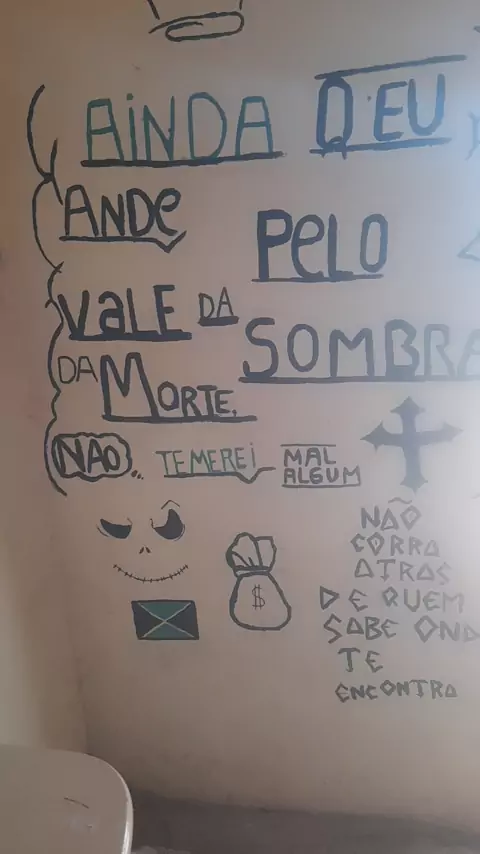 AiNDA Q EU
ANDe PeLO
VaLE DA SOMBRA
DA MORTE,
NAO... TEMEREi MAL
ALGUM
$
NÃO
CORRA
ATRAS
DE QUEM
SABE OND
TE
ENCONTRA